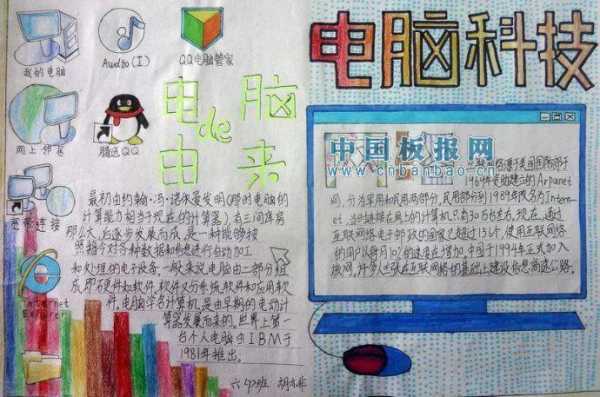 我的电脑
Audio(I)
QQ电脑管家
网上邻居
腾迅QQ
宽带连接
Internet
Explorer
电脑
de
由来
最初由约翰·冯·诺依曼发明(那时电脑的
计算能力相当于现在的计算器)有三间库房
那么大,后逐步发展而成。是一种能够按
照指令对各种数据和信息进行自动加工
和处理的电子设备,一般来说电脑由二部分组
成即硬件和软件,软件又分系统软件和应用软
件。电脑学名计算机,是由早期的电动计
算器发展而来的。世界上第一
台个人电脑由IBM于
1981年推出。
六(2)班
电脑科技
中国板报网
www.cnbanbao.cn
1969年
的Arpanet
网,分为军用和民用两部分,民用部分到1989年改名为Inter-
net,当时连接在网上的计算机只有30万台左右,现在,通过
互联网络
的用户以每月10%的速度在增加,中国于1994年正式加入
互联网络的基础上建设信息高速公路。